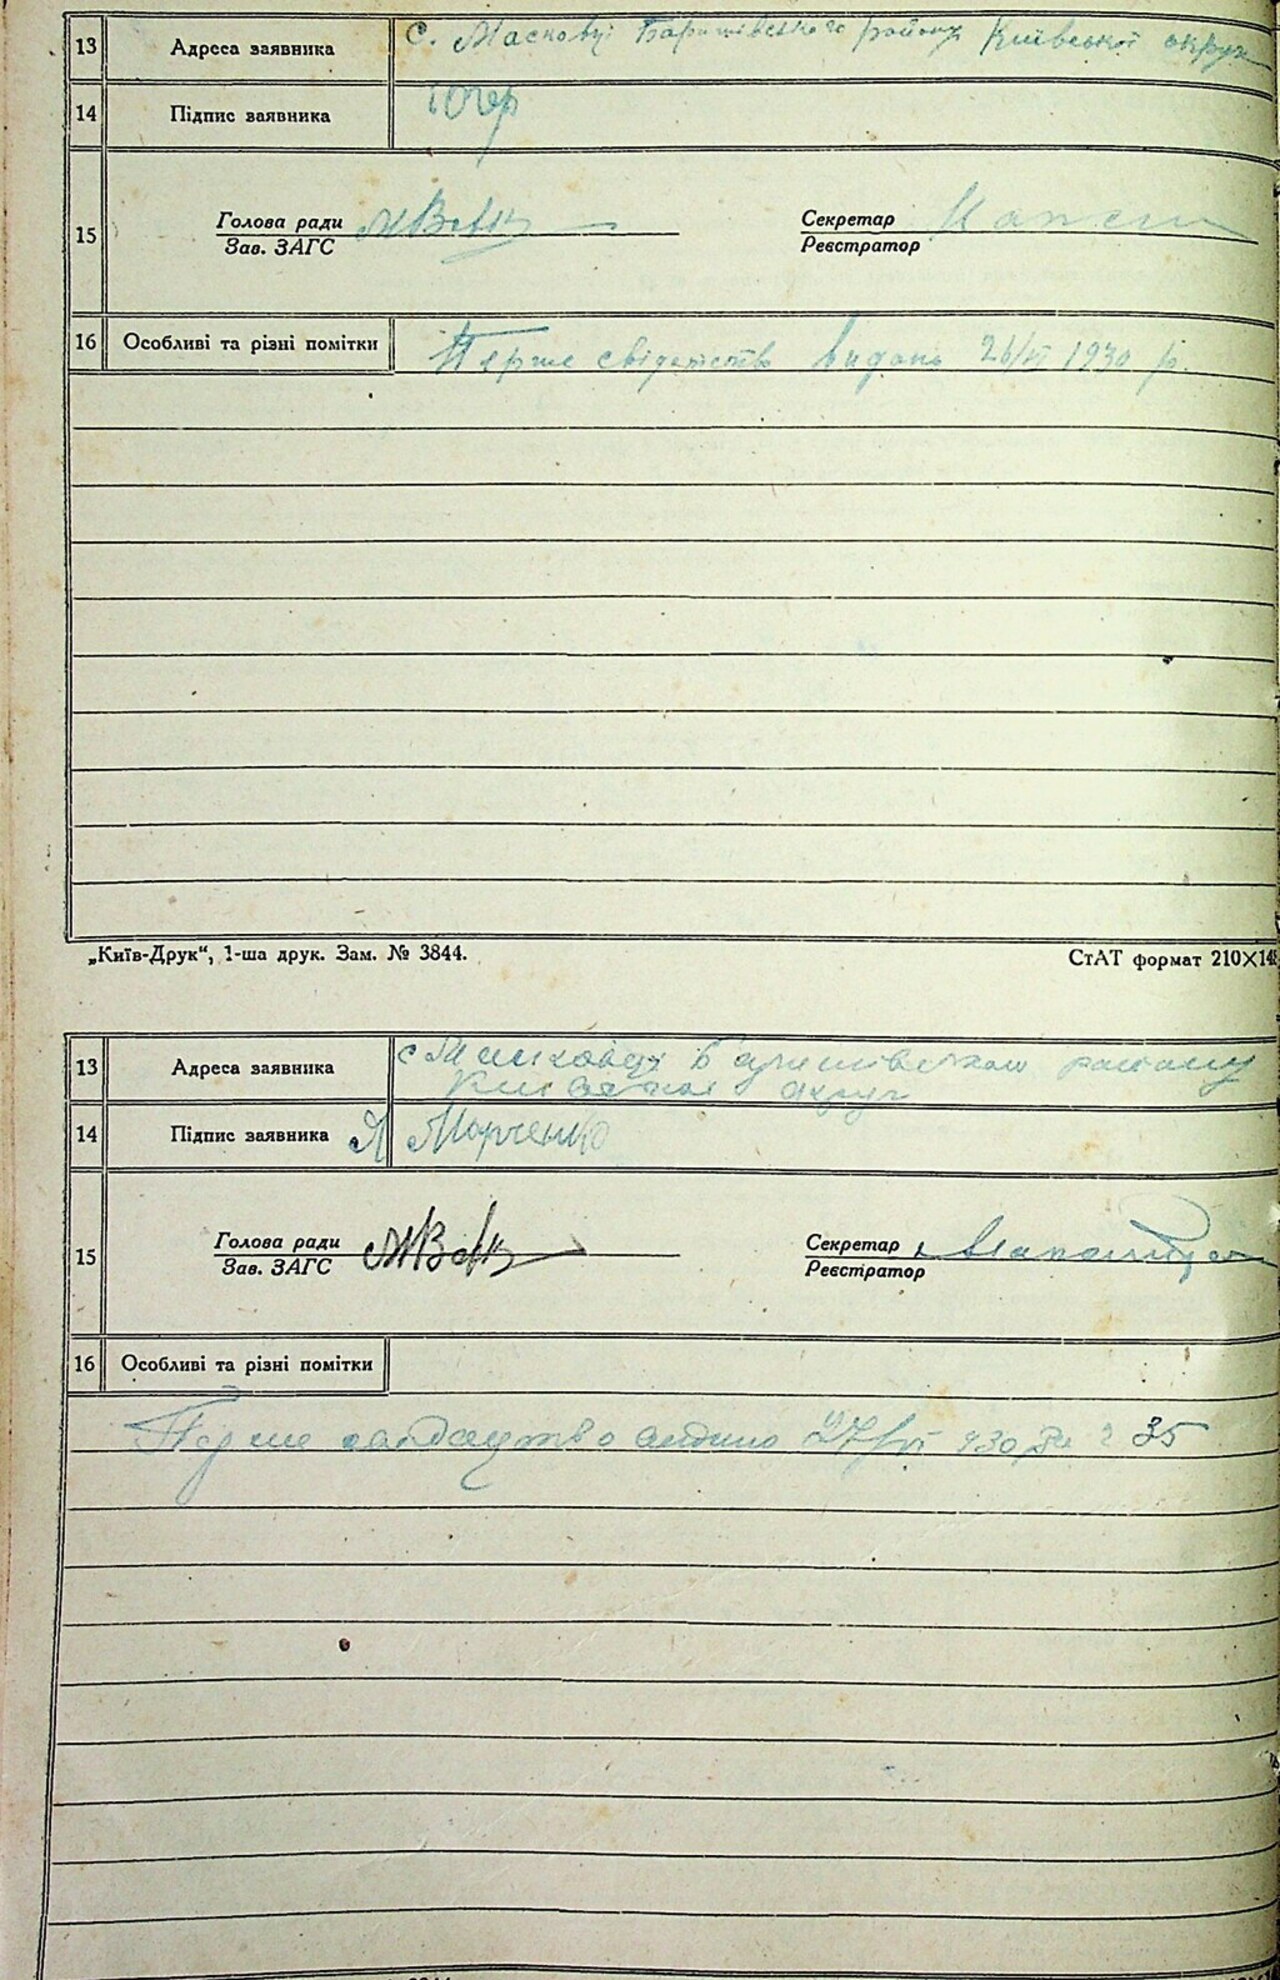 13 Адреса заявника с. Масковці Баришівського району Київської округи
14 Підпис заявника
15 Голова ради Секретар
Зав. ЗАГС Реєстратор
16 Особливі та різні помітки Перше свідоцтво видано 26/VI 1930 р.
„Київ-Друк“, 1-ша друк. Зам. № 3844. СтАТ формат 210×148
13 Адреса заявника с Масковці Баришівського району
Київської округи
14 Підпис заявника Я Марченко
15 Голова ради Секретар
Зав. ЗАГС Реєстратор
16 Особливі та різні помітки
Перше свідоцтво видано 27/VI 930 35